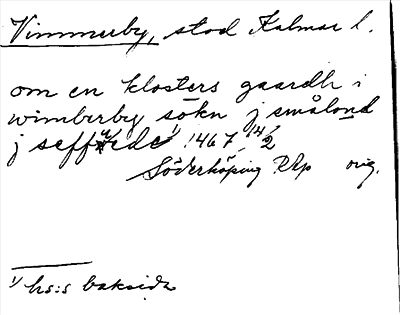 Vimmerby, stad Kalmar l.
om en klosters gaardh i
wimberby sökn j smålond
j seffwede 1) 1467 14/2
Söderköping RAp orig.
1) hs:s baksida